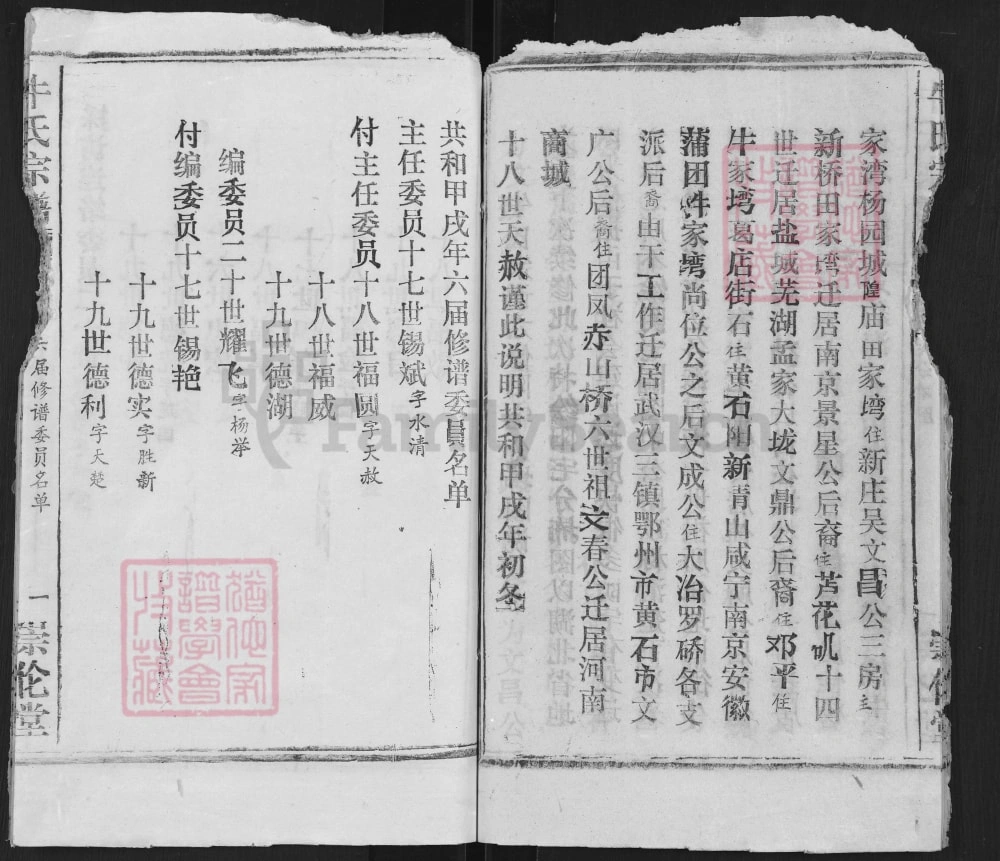 家湾杨园城隍庙田家塆住新庄吴文昌公三房主
新桥田家塆迁居南京景星公后裔住芦花矶十四
世迁居盐城芜湖孟家大垅文鼎公后裔住邓平住
牛家塆葛店街石住黄石阳新青山咸宁南京安徽
蒲团牛家塆尚位公之后文成公住大冶罗硚各支
派后裔由于工作迁居武汉三镇鄂州市黄石市文
广公后裔住团凤赤山桥六世祖文春公迁居河南
商城
十八世天赦谨此说明共和甲戌年初冬
共和甲戌年六届修谱委員名单
主任委员十七世锡斌字水清
付主任委员十八世福圆字天赦
十八世福威
十九世德湖
编委员二十世耀飞字杨举
付编委员十七世锡艳
十九世德实字胜新
十九世德利字天楚
牛氏宗谱
六届修谱委员名单
一
崇伦堂
FamilySearch